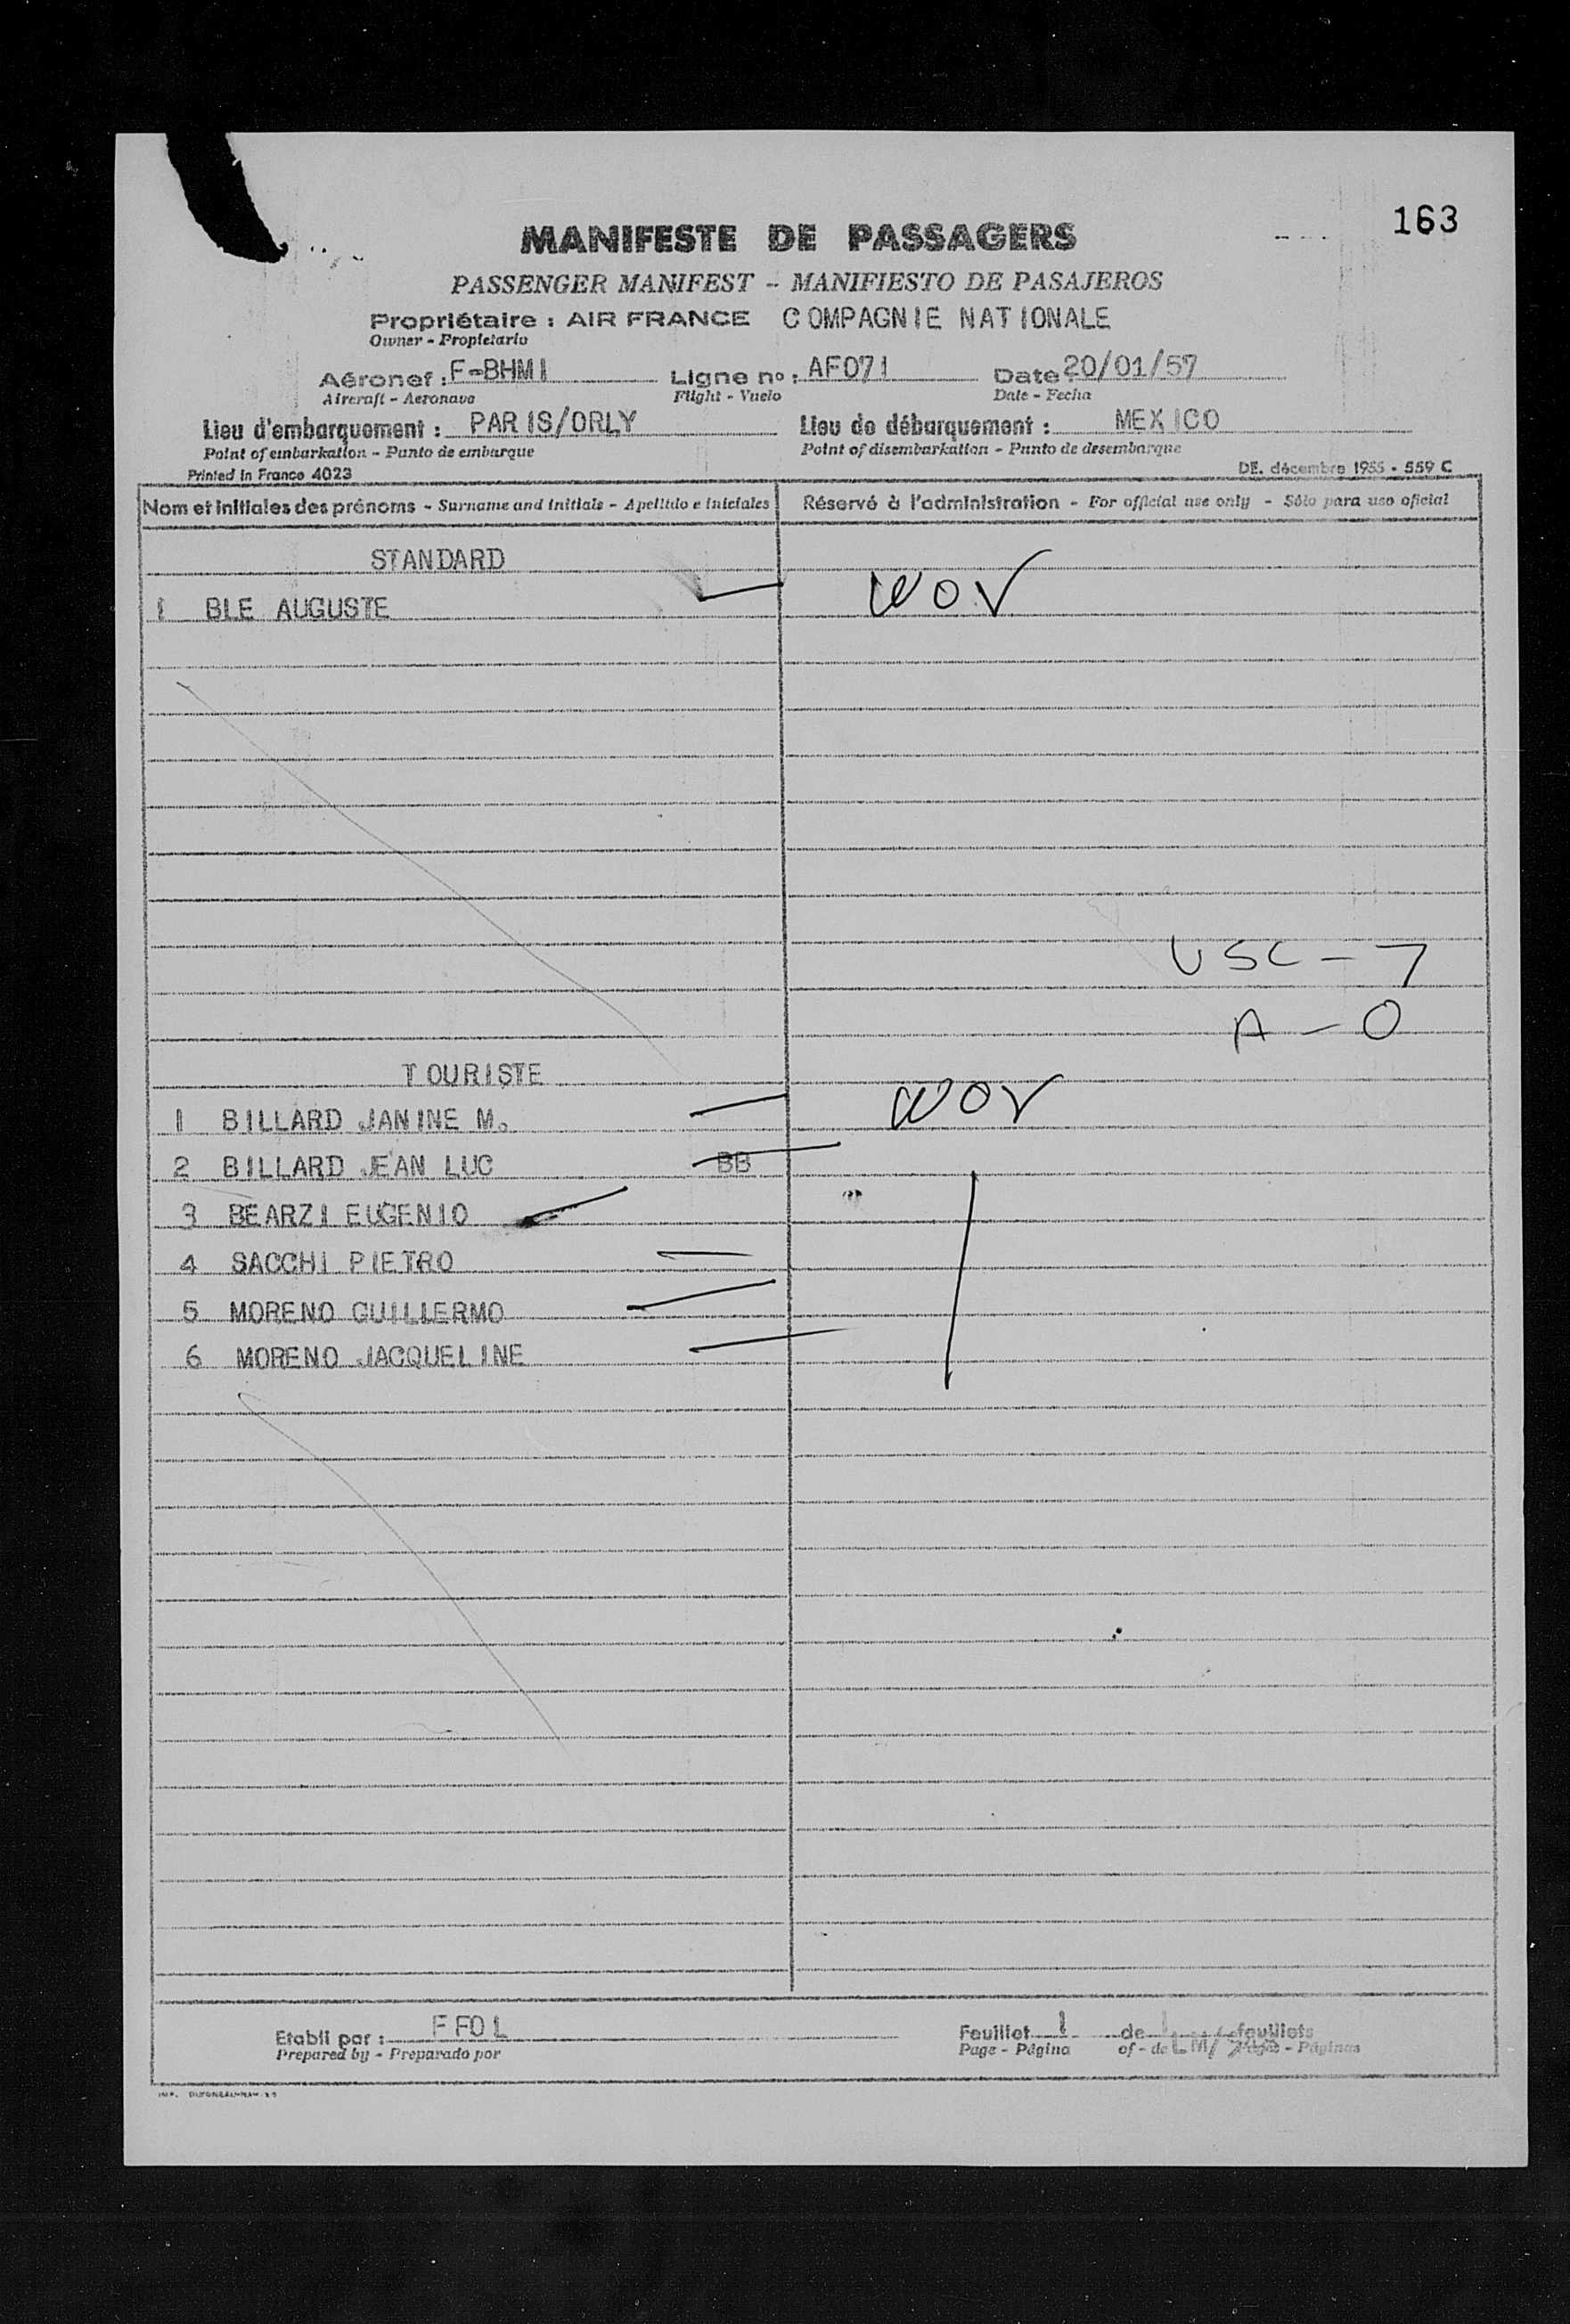 163
MANIFESTE DE PASSAGERS
PASSENGER MANIFEST - MANIFIESTO DE PASAJEROS
Propriétaire : AIR FRANCE COMPAGNIE NATIONALE
Owner - Propietario
Aéronef : F-BHMI Ligne nº : AF071 Date 20/01/57
Aircraft - Aeronave Flight - Vuelo Date - Fecha
Lieu d'embarquement : PARIS/ORLY Lieu de débarquement : MEXICO
Point of embarkation - Punto de embarque Point of disembarkation - Punto de desembarque
Printed in France 4023 DE. décembre 1955 - 559 C
Nom et initiales des prénoms - Surname and initials - Apellido e iniciales Réservé à l'administration - For official use only - Sólo para uso oficial
STANDARD
1 BLE AUGUSTE WOV
USC - 7
A - 0
TOURISTE
1 BILLARD JANINE M. WOV
2 BILLARD JEAN LUC BB
3 BEARZI EUGENIO
4 SACCHI PIETRO
5 MORENO GUILLERMO
6 MORENO JACQUELINE
Etabli par : FFOL Feuillet 1 de 1 feuillets
Prepared by - Preparado por Page - Página of - de LM/ Pages - Páginas